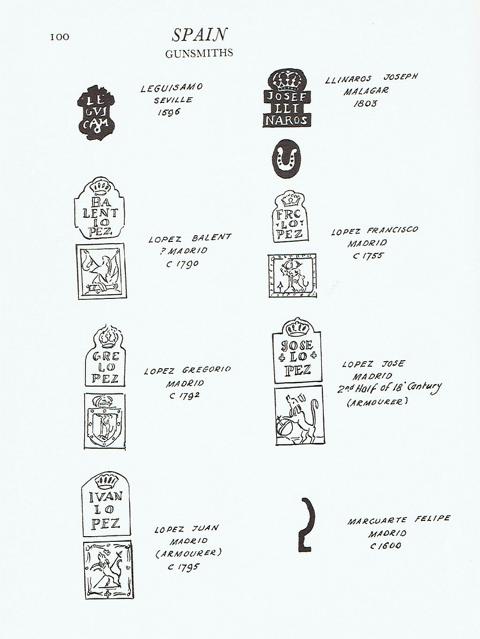 100
SPAIN
GUNSMITHS
LE
GUI
CAM
LEGUISAMO
SEVILLE
1596
JOSEF
LLI
NAROS
LLINAROS JOSEPH
MALAGAR
1803
BA
LENT
LO
PEZ
LOPEZ BALENT
? MADRID
C 1790
FRC
LO
PEZ
LOPEZ FRANCISCO
MADRID
C 1755
GRE
LO
PEZ
LOPEZ GREGORIO
MADRID
C 1792
JOSE
LO
PEZ
LOPEZ JOSE
MADRID
2nd Half of 18' Century
(ARMOURER)
IVAN
LO
PEZ
LOPEZ JUAN
MADRID
(ARMOURER)
C 1795
MARCUARTE FELIPE
MADRID
C 1600